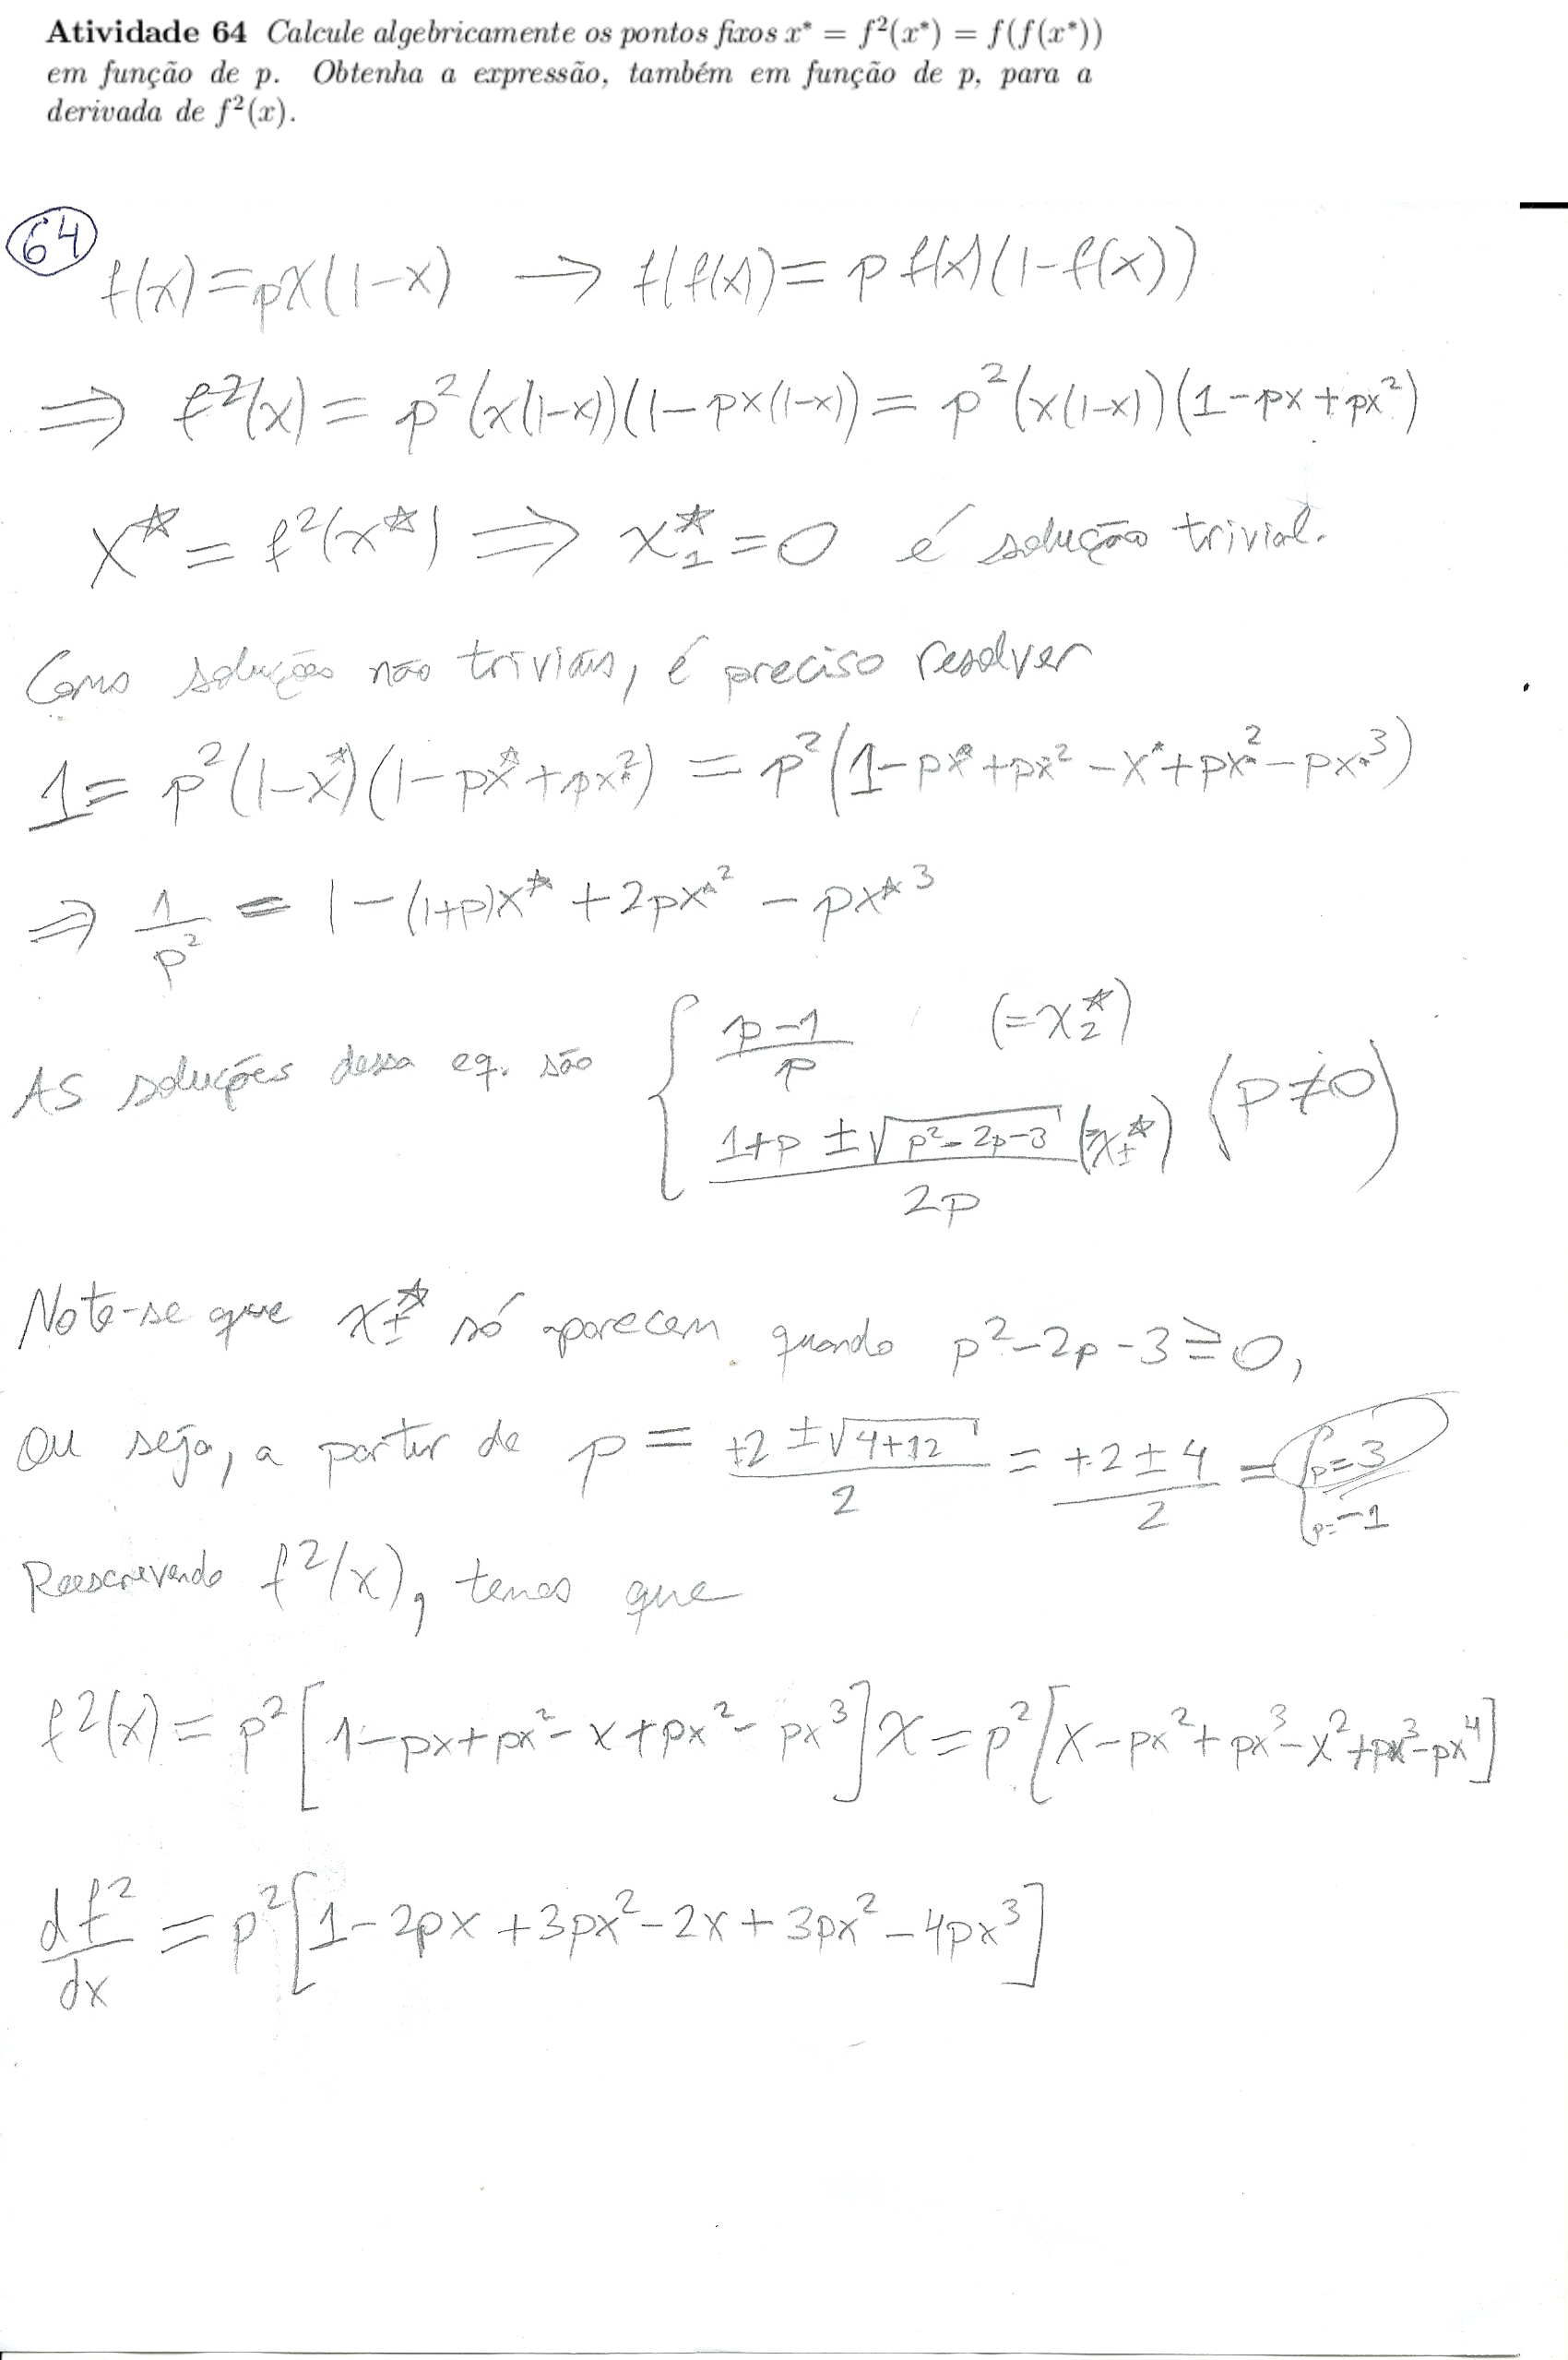 Atividade 64 Calcule algebricamente os pontos fixos x* = f²(x*) = f(f(x*))
em função de p. Obtenha a expressão, também em função de p, para a
derivada de f²(x).
64
f(x) = px(1-x) → f(f(x)) = p f(x)(1-f(x))
⇒ f²(x) = p²(x(1-x))(1-px(1-x)) = p²(x(1-x))(1-px+px²)
x* = f²(x*) ⇒ x₁* = 0 é solução trivial.
Como soluções não triviais, é preciso resolver
1 = p²(1-x*)(1-px*+px*²) = p²(1-px*+px*²-x*+px*²-px*³)
⇒ 1/p² = 1-(1+p)x* + 2px*² - px*³
As soluções dessa eq. são { (p-1)/p (=x₂*)
(1+p ± √(p²-2p-3))/2p (=x±*) (p≠0)
Note-se que x±* só aparecem quando p²-2p-3 ≥ 0,
ou seja, a partir de p = (+2 ± √(4+12))/2 = (+2 ± 4)/2 = { p=3
p=-1
Reescrevendo f²(x), temos que
f²(x) = p²[1-px+px²-x+px²-px³]x = p²[x-px²+px³-x²+px³-px⁴]
df²/dx = p²[1-2px+3px²-2x+3px²-4px³]